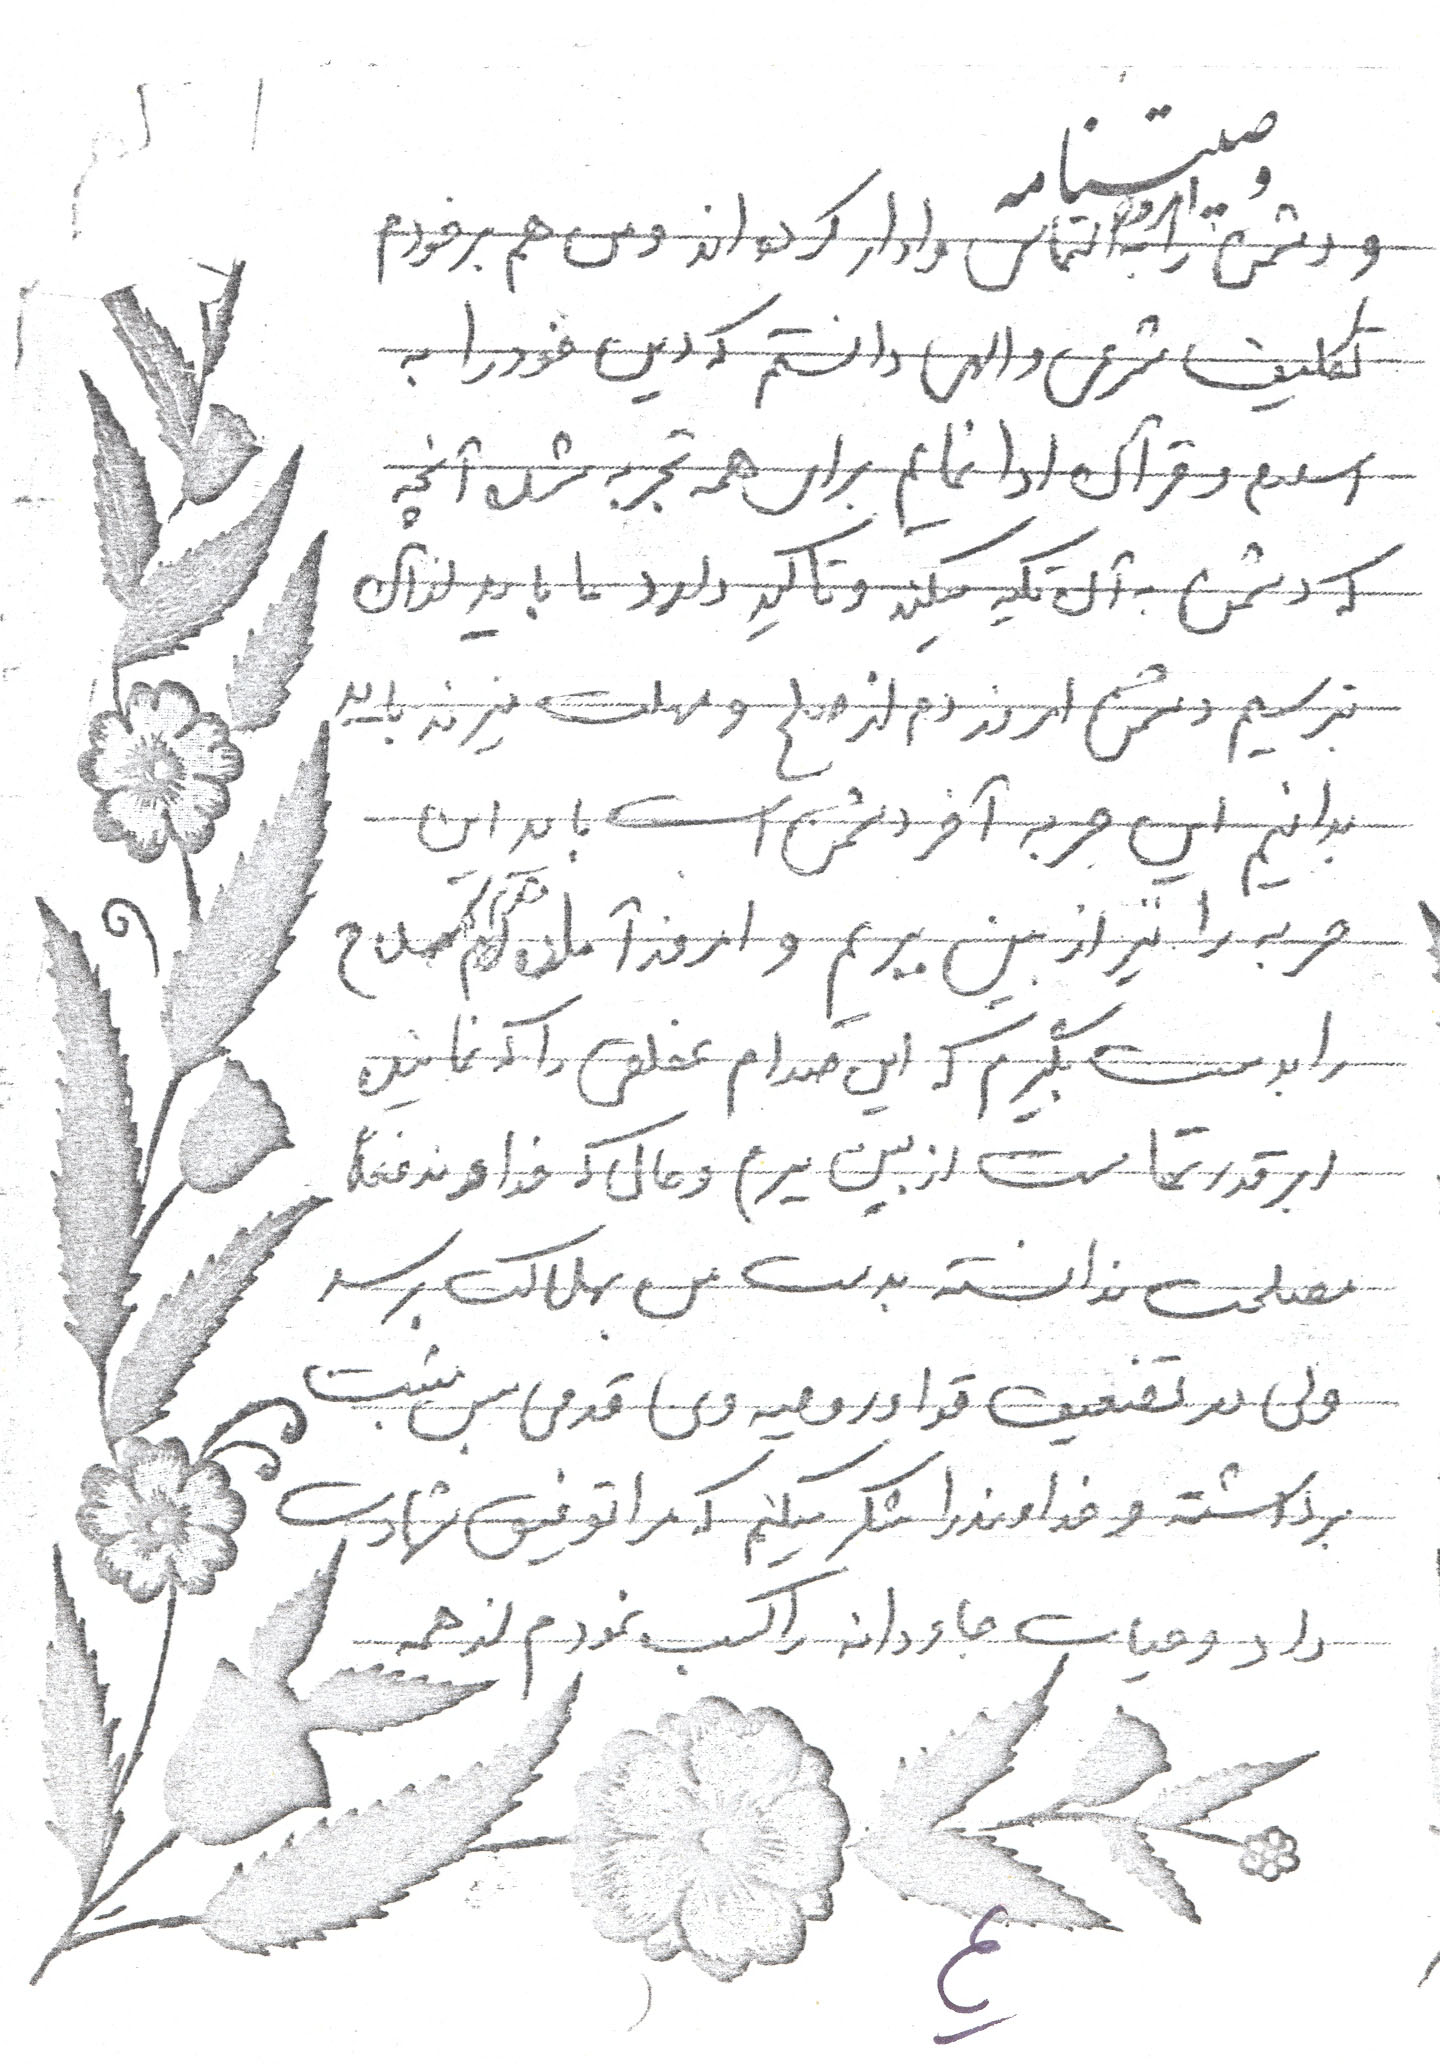 وصیتنامه
و دشمن را به التماس وادار کرده اند و من هم بر خودم
تکلیف شرعی و الهی دانستم که دین خود را به
اسلام و قرآن ادا نمایم برای همه تجربه شده آنچه
که دشمن به آن تکیه میکند و تاکید دارد ما باید از آن
بترسیم دشمن امروز دم از صلح و مهلت میزند باید
بدانیم این حربه آخر دشمن است باید این
حربه را نیز از بین ببریم و امروز آمدم سلاح
را بدست بگیرم که این صدام عفلقی را که نماینده
ابرقدرتهاست از بین ببرم و حال که خداوند
مصلحت ندانسته بدست من بهلاکت برسد
ولی در تضعیف قوا و روحیه وی قدمی بس مثبت
برداشته و خداوند را شکر میکنم که مرا توفیق شهادت
داد و حیات جاودانه را کسب نمودم از همه